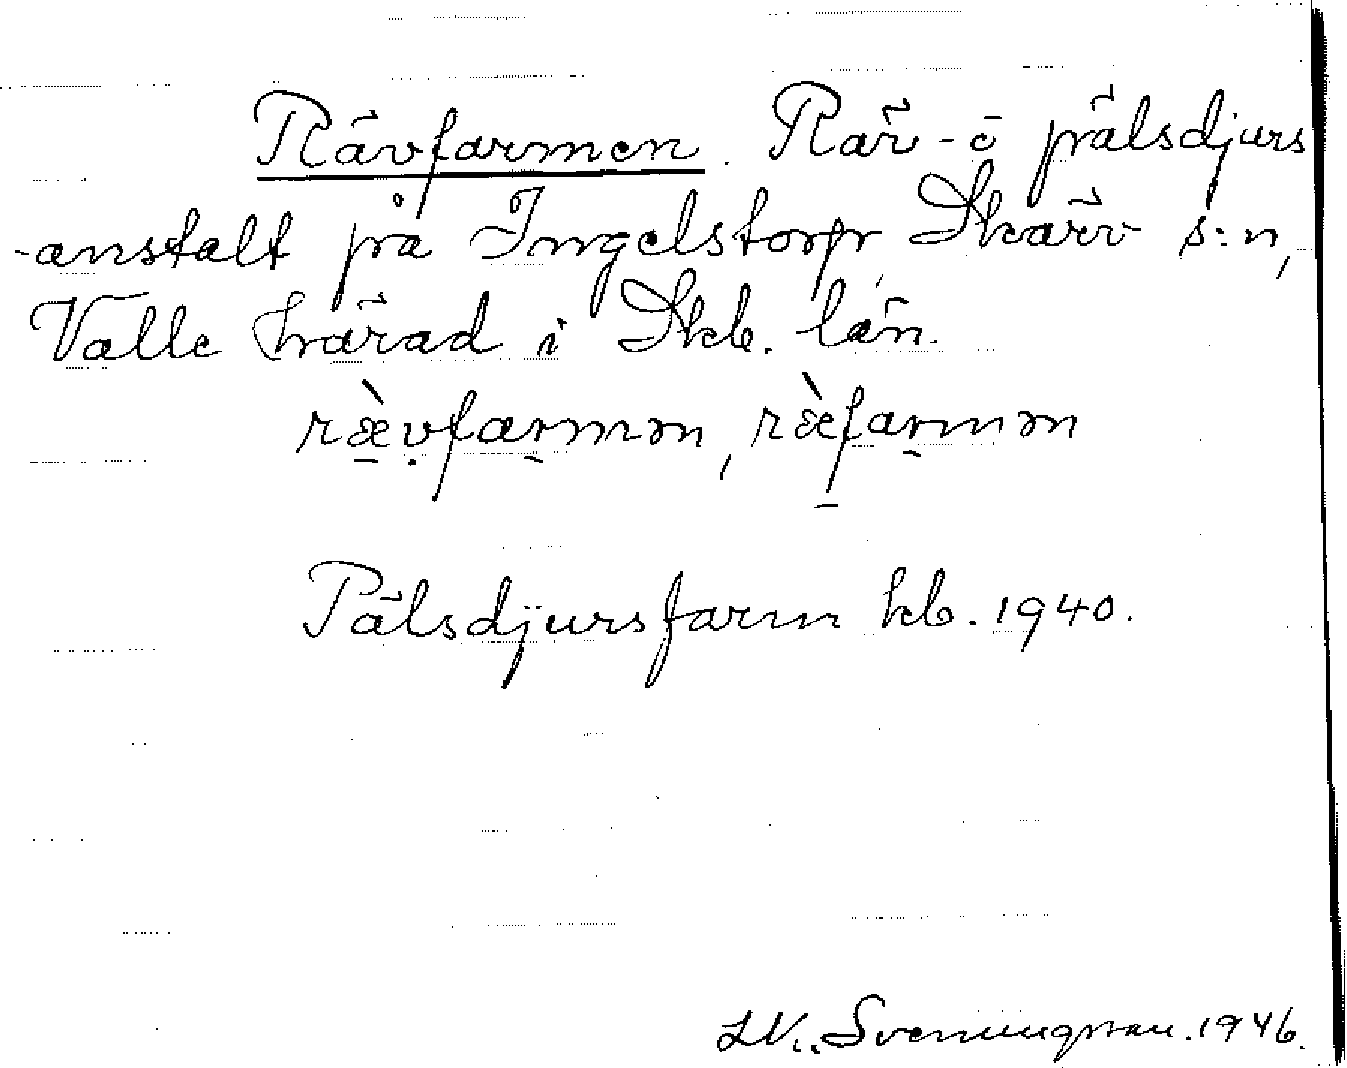 Rävfarmen. Räv- o pälsdjurs
-anstalt på Ingelstorp, Skärv s:n,
Valle härad i Skb. län.
ræ̀vfarmən, ræ̀farmən
Pälsdjursfarm kb. 1940.
Sveningsson. 1946.